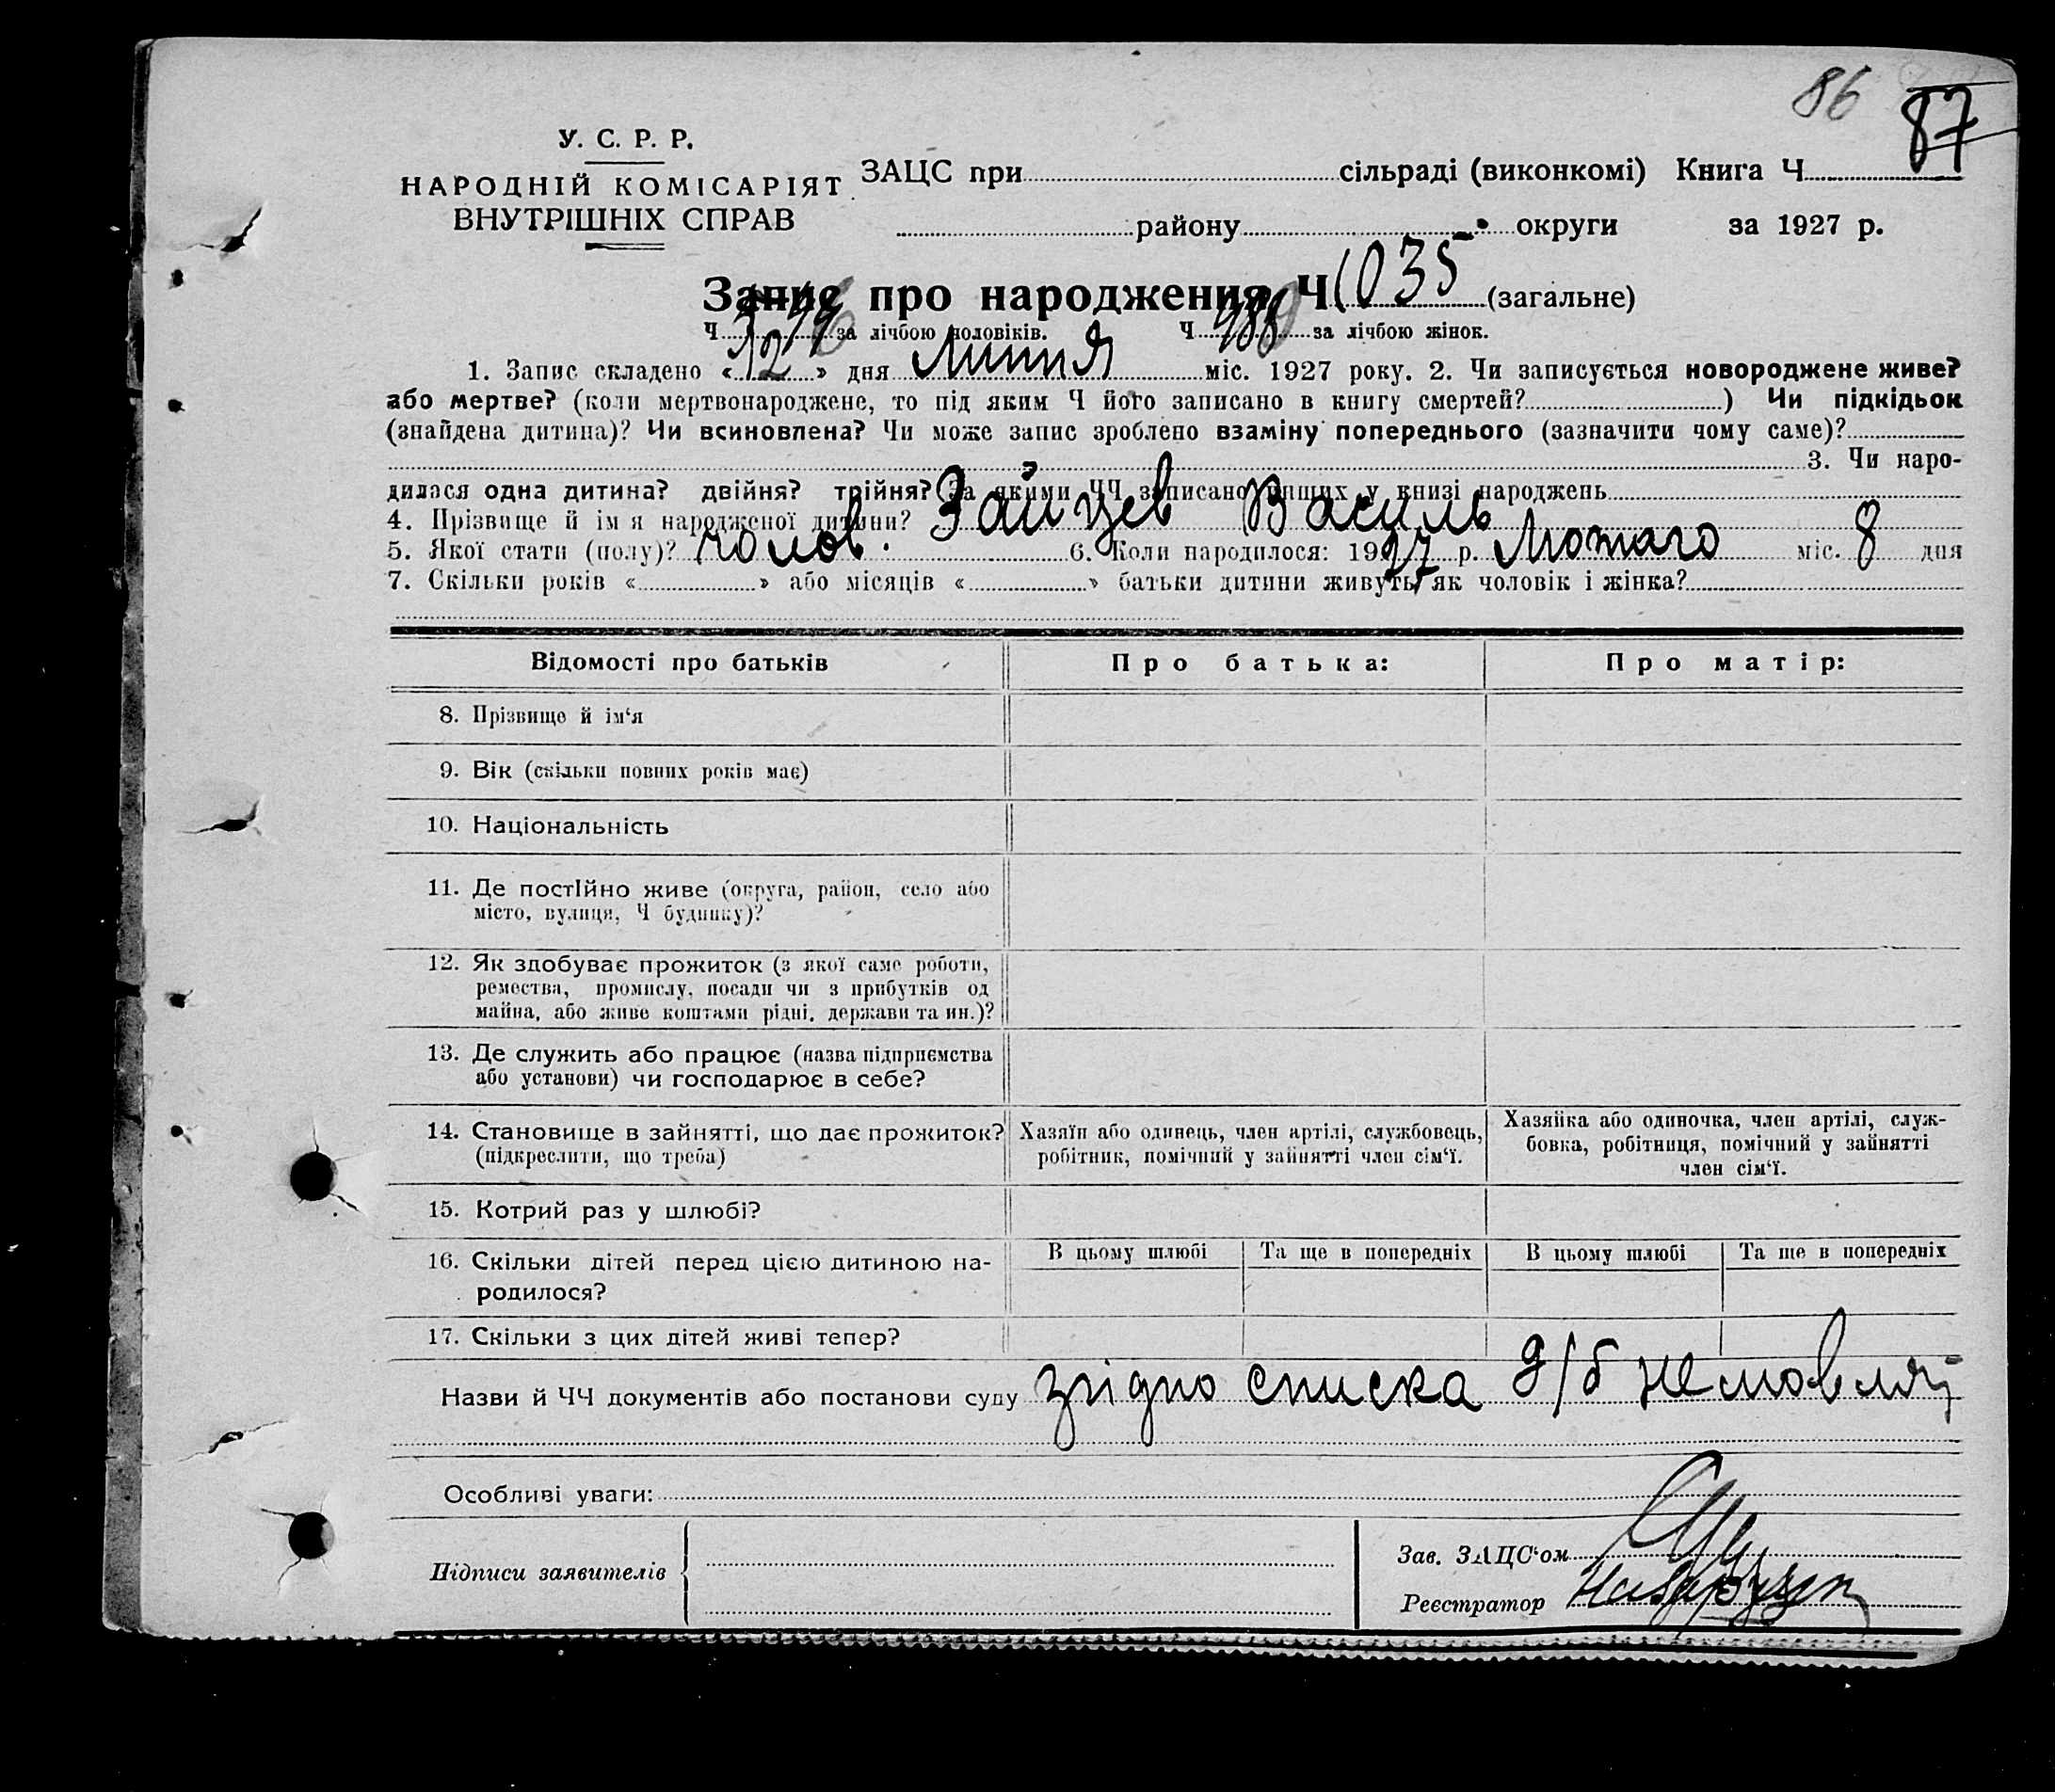 86 87
У. С. Р. Р.
НАРОДНІЙ КОМІСАРІЯТ
ВНУТРІШНІХ СПРАВ
ЗАЦС при сільраді (виконкомі) Книга Ч
району округи за 1927 р.
Запис про народження Ч 1035 (загальне)
Ч за лічбою чоловіків. Ч за лічбою жінок.
1. Запис складено «12» дня Липня міс. 1927 року. 2. Чи записується новороджене живе?
або мертве? (коли мертвонароджене, то під яким Ч його записано в книгу смертей? ) Чи підкідьок
(знайдена дитина)? Чи всиновлена? Чи може запис зроблено взаміну попереднього (зазначити чому саме)?
3. Чи наро-
дилася одна дитина? двійня? трійня? За якими ЧЧ записано инших у книзі народжень
4. Прізвище й ім я народженої дитини? Зайцев Василь
5. Якої стати (полу)? чолов. 6. Коли народилося: 1927 р. Лютаго міс. 8 дня
7. Скільки років « » або місяців « » батьки дитини живуть як чоловік і жінка?
Відомості про батьків Про батька: Про матір:
8. Прізвище й ім‘я
9. Вік (скільки повних років має)
10. Національність
11. Де постІйно живе (округа, район, село або
місто, вулиця, Ч будинку)?
12. Як здобуває прожиток (з якої саме роботи,
ремества, промислу, посади чи з прибутків од
майна, або живе коштами рідні, держави та ин.)?
13. Де служить або працює (назва підприємства
або установи) чи господарює в себе?
14. Становище в зайнятті, що дає прожиток?
(підкреслити, що треба)
Хазяїн або одинець, член артілі, службовець,
робітник, помічний у зайнятті член сім‘ї.
Хазяйка або одиночка, член артілі, служ-
бовка, робітниця, помічний у зайнятті
член сім‘ї.
15. Котрий раз у шлюбі?
16. Скільки дітей перед цією дитиною на-
родилося?
В цьому шлюбі Та ще в попередніх В цьому шлюбі Та ще в попередніх
17. Скільки з цих дітей живі тепер?
Назви й ЧЧ документів або постанови суду згідно списка д/б немовля
Особливі уваги:
Підписи заявителів
Зав. ЗАЦС‘ом
Реєстратор